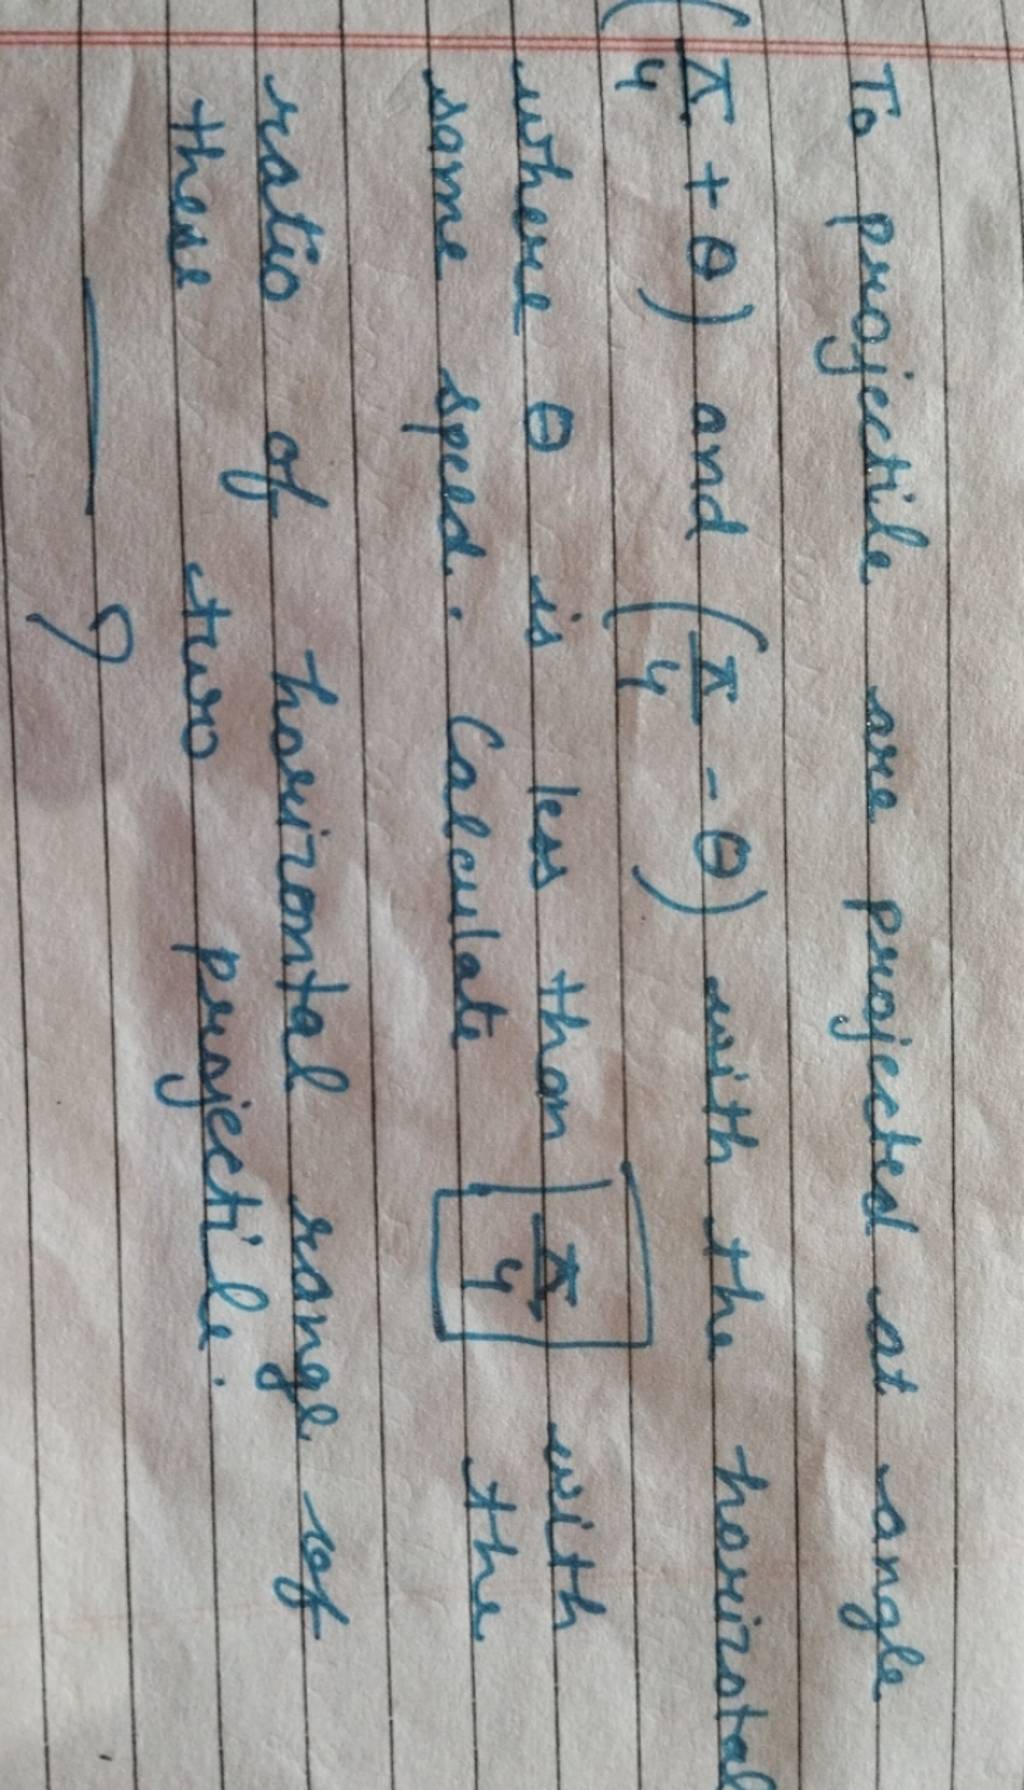 To projectile are projected at angle
(π/4 + θ) and (π/4 - θ) with the horizotal
where θ is less than π/4 with
same speed. Calculate the
ratio of horizontal range of
these two projectile.
— ?